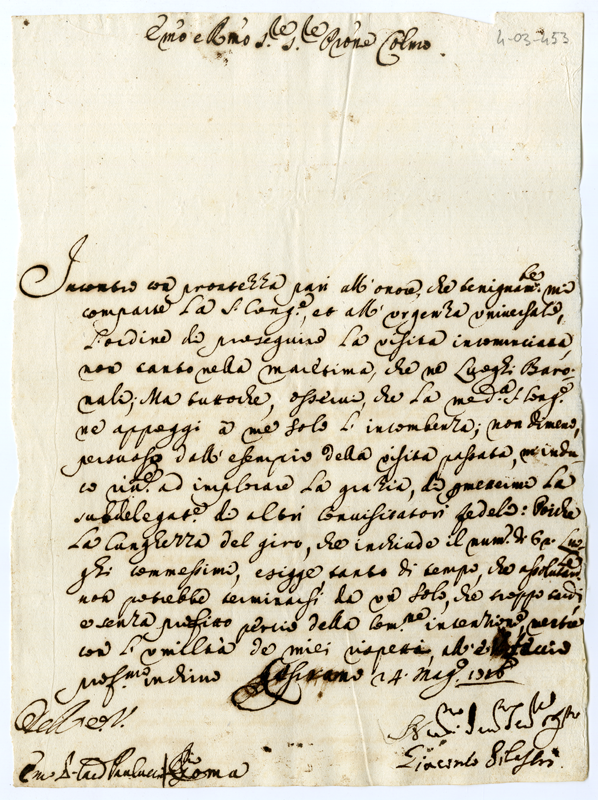 Emo e Rmo S.re S.re Prone Colmo
4-03-453
Incontro con prontezza pari all'onore, che benignam.te mi
comparte La S. Cong.e, et all'urgenza universale,
L'ordine di proseguire La visita incominciata,
non tanto nella maritima, che ne Luoghi Baro-
nali; Ma tuttoche, osservi, che La med.a S. Cong.e
ne appoggi à me solo L'incombenza; non dimeno,
persuaso dall'esempio della visita passata, m'indu-
co ad implorare La grazia, di La
subdelegat.e di altri Convisitatori Poiche
La Lunghezza del giro, che inchiude il num.o di Luo-
ghi commessimi, esigge tanto di tempo, che assolutam.te
non potrebbe terminarsi da un solo, che troppo tardi
e senza profitto della intenzione,
con L'umiltà de miei rispetti
prof.mo inchino 14. Mag.o 1716
Giacinto
Emo S. Card Paulucci Roma